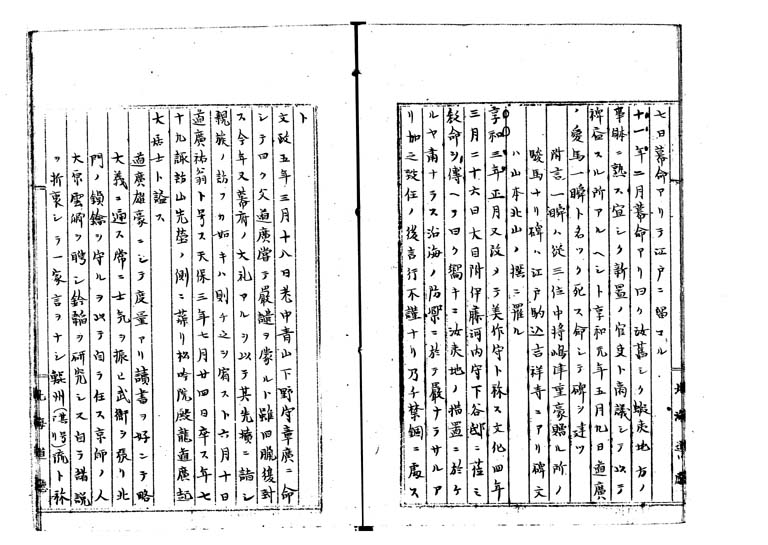 七日幕命アリテ江戸ニ留マル
十一年二月幕命アリ曰ク汝舊シク蝦夷地方ノ
事勝ニ熟ス宜シク新置ノ官吏ト商議シテ以テ
裨益スル所アルヘシト享和元年五月九日道廣
愛馬一瞬ト名ツク死ス命シテ碑ヲ建ツ
附言一瞬ハ従三位中将嶋津重豪贈ル所ノ
駿馬ナリ碑ハ江戸駒込吉祥寺ニアリ碑文
ハ山本北山ノ撰ニ罹ル
享和三年正月又改メテ美作守ト稱ス文化四年
三月二十六日大目附伊藤河内守下谷邸ニ莅ミ
教命ヲ傳ヘテ曰ク嚮キニ汝夷地ノ措置ニ於ケ
ルヤ肅ナラス沿海ノ防禦ニ於テ嚴ナラサルア
リ加之致仕ノ後言行不謹ナリ乃チ禁錮ニ處ス
ト
文政五年三月十八日老中青山下野守章廣ニ命
シテ曰ク父道廣嘗テ嚴譴ヲ蒙ルト雖旧職復封
ス今年又幕府ノ大礼アルヲ以テ其先塋ニ詣シ
親族ノ訪フカ如キハ則チ之ヲ宥スト六月十日
道廣祐翁ト号ス天保三年七月廿四日卒ス年七
十九諏訪山先塋ノ側ニ葬リ松吟院殿龍道廣
大居士ト諡ス
道廣雄豪ニシテ度量アリ讀書ヲ好ンテ略
大義ニ通ス常ニ士気ヲ振ヒ武衛ヲ張リ北
門ノ鎖鑰ヲ守ルヲ以テ自ラ任ス京師ノ人
大原雲卿ヲ聘シ鈴韜ヲ研究シ又自ラ諸説
ヲ折衷シテ一家言ヲナシ